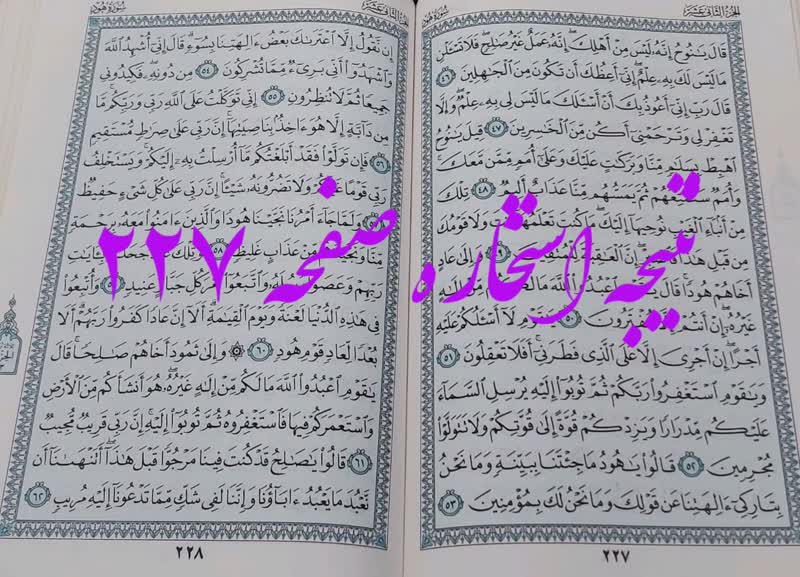 الجزء الثاني عشر
سورة هود
قَالَ يَٰنُوحُ إِنَّهُۥ لَيْسَ مِنْ أَهْلِكَ إِنَّهُۥ عَمَلٌ غَيْرُ صَٰلِحٍ فَلَا تَسْـَٔلْنِ
مَا لَيْسَ لَكَ بِهِۦ عِلْمٌ إِنِّىٓ أَعِظُكَ أَن تَكُونَ مِنَ ٱلْجَٰهِلِينَ ٤٦
قَالَ رَبِّ إِنِّىٓ أَعُوذُ بِكَ أَنْ أَسْـَٔلَكَ مَا لَيْسَ لِى بِهِۦ عِلْمٌ وَإِلَّا
تَغْفِرْ لِى وَتَرْحَمْنِىٓ أَكُن مِّنَ ٱلْخَٰسِرِينَ ٤٧ قِيلَ يَٰنُوحُ
ٱهْبِطْ بِسَلَٰمٍ مِّنَّا وَبَرَكَٰتٍ عَلَيْكَ وَعَلَىٰٓ أُمَمٍ مِّمَّن مَّعَكَ
وَأُمَمٌ سَنُمَتِّعُهُمْ ثُمَّ يَمَسُّهُم مِّنَّا عَذَابٌ أَلِيمٌ ٤٨ تِلْكَ
مِنْ أَنۢبَآءِ ٱلْغَيْبِ نُوحِيهَآ إِلَيْكَ مَا كُنتَ تَعْلَمُهَآ أَنتَ وَلَا قَوْمُكَ
مِن قَبْلِ هَٰذَا فَٱصْبِرْ إِنَّ ٱلْعَٰقِبَةَ لِلْمُتَّقِينَ ٤٩ وَإِلَىٰ عَادٍ
أَخَاهُمْ هُودًا قَالَ يَٰقَوْمِ ٱعْبُدُوا۟ ٱللَّهَ مَا لَكُم مِّنْ إِلَٰهٍ
غَيْرُهُۥٓ إِنْ أَنتُمْ إِلَّا مُفْتَرُونَ ٥٠ يَٰقَوْمِ لَآ أَسْـَٔلُكُمْ عَلَيْهِ
أَجْرًا إِنْ أَجْرِىَ إِلَّا عَلَى ٱلَّذِى فَطَرَنِىٓ أَفَلَا تَعْقِلُونَ ٥١
وَيَٰقَوْمِ ٱسْتَغْفِرُوا۟ رَبَّكُمْ ثُمَّ تُوبُوٓا۟ إِلَيْهِ يُرْسِلِ ٱلسَّمَآءَ
عَلَيْكُم مِّدْرَارًا وَيَزِدْكُمْ قُوَّةً إِلَىٰ قُوَّتِكُمْ وَلَا تَتَوَلَّوْا۟
مُجْرِمِينَ ٥٢ قَالُوا۟ يَٰهُودُ مَا جِئْتَنَا بِبَيِّنَةٍ وَمَا نَحْنُ
بِتَارِكِىٓ ءَالِهَتِنَا عَن قَوْلِكَ وَمَا نَحْنُ لَكَ بِمُؤْمِنِينَ ٥٣
٢٢٧
الجزء الثاني عشر
سورة هود
إِن نَّقُولُ إِلَّا ٱعْتَرَىٰكَ بَعْضُ ءَالِهَتِنَا بِسُوٓءٍ قَالَ إِنِّىٓ أُشْهِدُ ٱللَّهَ
وَٱشْهَدُوٓا۟ أَنِّى بَرِىٓءٌ مِّمَّا تُشْرِكُونَ ٥٤ مِن دُونِهِۦ فَكِيدُونِى
جَمِيعًا ثُمَّ لَا تُنظِرُونِ ٥٥ إِنِّى تَوَكَّلْتُ عَلَى ٱللَّهِ رَبِّى وَرَبِّكُم مَّا
مِن دَآبَّةٍ إِلَّا هُوَ ءَاخِذٌۢ بِنَاصِيَتِهَآ إِنَّ رَبِّى عَلَىٰ صِرَٰطٍ مُّسْتَقِيمٍ
٥٦ فَإِن تَوَلَّوْا۟ فَقَدْ أَبْلَغْتُكُم مَّآ أُرْسِلْتُ بِهِۦٓ إِلَيْكُمْ وَيَسْتَخْلِفُ
رَبِّى قَوْمًا غَيْرَكُمْ وَلَا تَضُرُّونَهُۥ شَيْـًٔا إِنَّ رَبِّى عَلَىٰ كُلِّ شَىْءٍ حَفِيظٌ
٥٧ وَلَمَّا جَآءَ أَمْرُنَا نَجَّيْنَا هُودًا وَٱلَّذِينَ ءَامَنُوا۟ مَعَهُۥ بِرَحْمَةٍ
مِّنَّا وَنَجَّيْنَٰهُم مِّنْ عَذَابٍ غَلِيظٍ ٥٨ وَتِلْكَ عَادٌ جَحَدُوا۟ بِـَٔايَٰتِ
رَبِّهِمْ وَعَصَوْا۟ رُسُلَهُۥ وَٱتَّبَعُوٓا۟ أَمْرَ كُلِّ جَبَّارٍ عَنِيدٍ ٥٩ وَأُتْبِعُوا۟
فِى هَٰذِهِ ٱلدُّنْيَا لَعْنَةً وَيَوْمَ ٱلْقِيَٰمَةِ أَلَآ إِنَّ عَادًا كَفَرُوا۟ رَبَّهُمْ أَلَا
بُعْدًا لِّعَادٍ قَوْمِ هُودٍ ٦٠ ۞ وَإِلَىٰ ثَمُودَ أَخَاهُمْ صَٰلِحًا قَالَ
يَٰقَوْمِ ٱعْبُدُوا۟ ٱللَّهَ مَا لَكُم مِّنْ إِلَٰهٍ غَيْرُهُۥ هُوَ أَنشَأَكُم مِّنَ ٱلْأَرْضِ
وَٱسْتَعْمَرَكُمْ فِيهَا فَٱسْتَغْفِرُوهُ ثُمَّ تُوبُوٓا۟ إِلَيْهِ إِنَّ رَبِّى قَرِيبٌ مُّجِيبٌ
٦١ قَالُوا۟ يَٰصَٰلِحُ قَدْ كُنتَ فِينَا مَرْجُوًّا قَبْلَ هَٰذَآ أَتَنْهَىٰنَآ أَن
نَّعْبُدَ مَا يَعْبُدُ ءَابَآؤُنَا وَإِنَّنَا لَفِى شَكٍّ مِّمَّا تَدْعُونَآ إِلَيْهِ مُرِيبٍ ٦٢
٢٢٨
نتیجه استخاره صفحه ۲۲۷